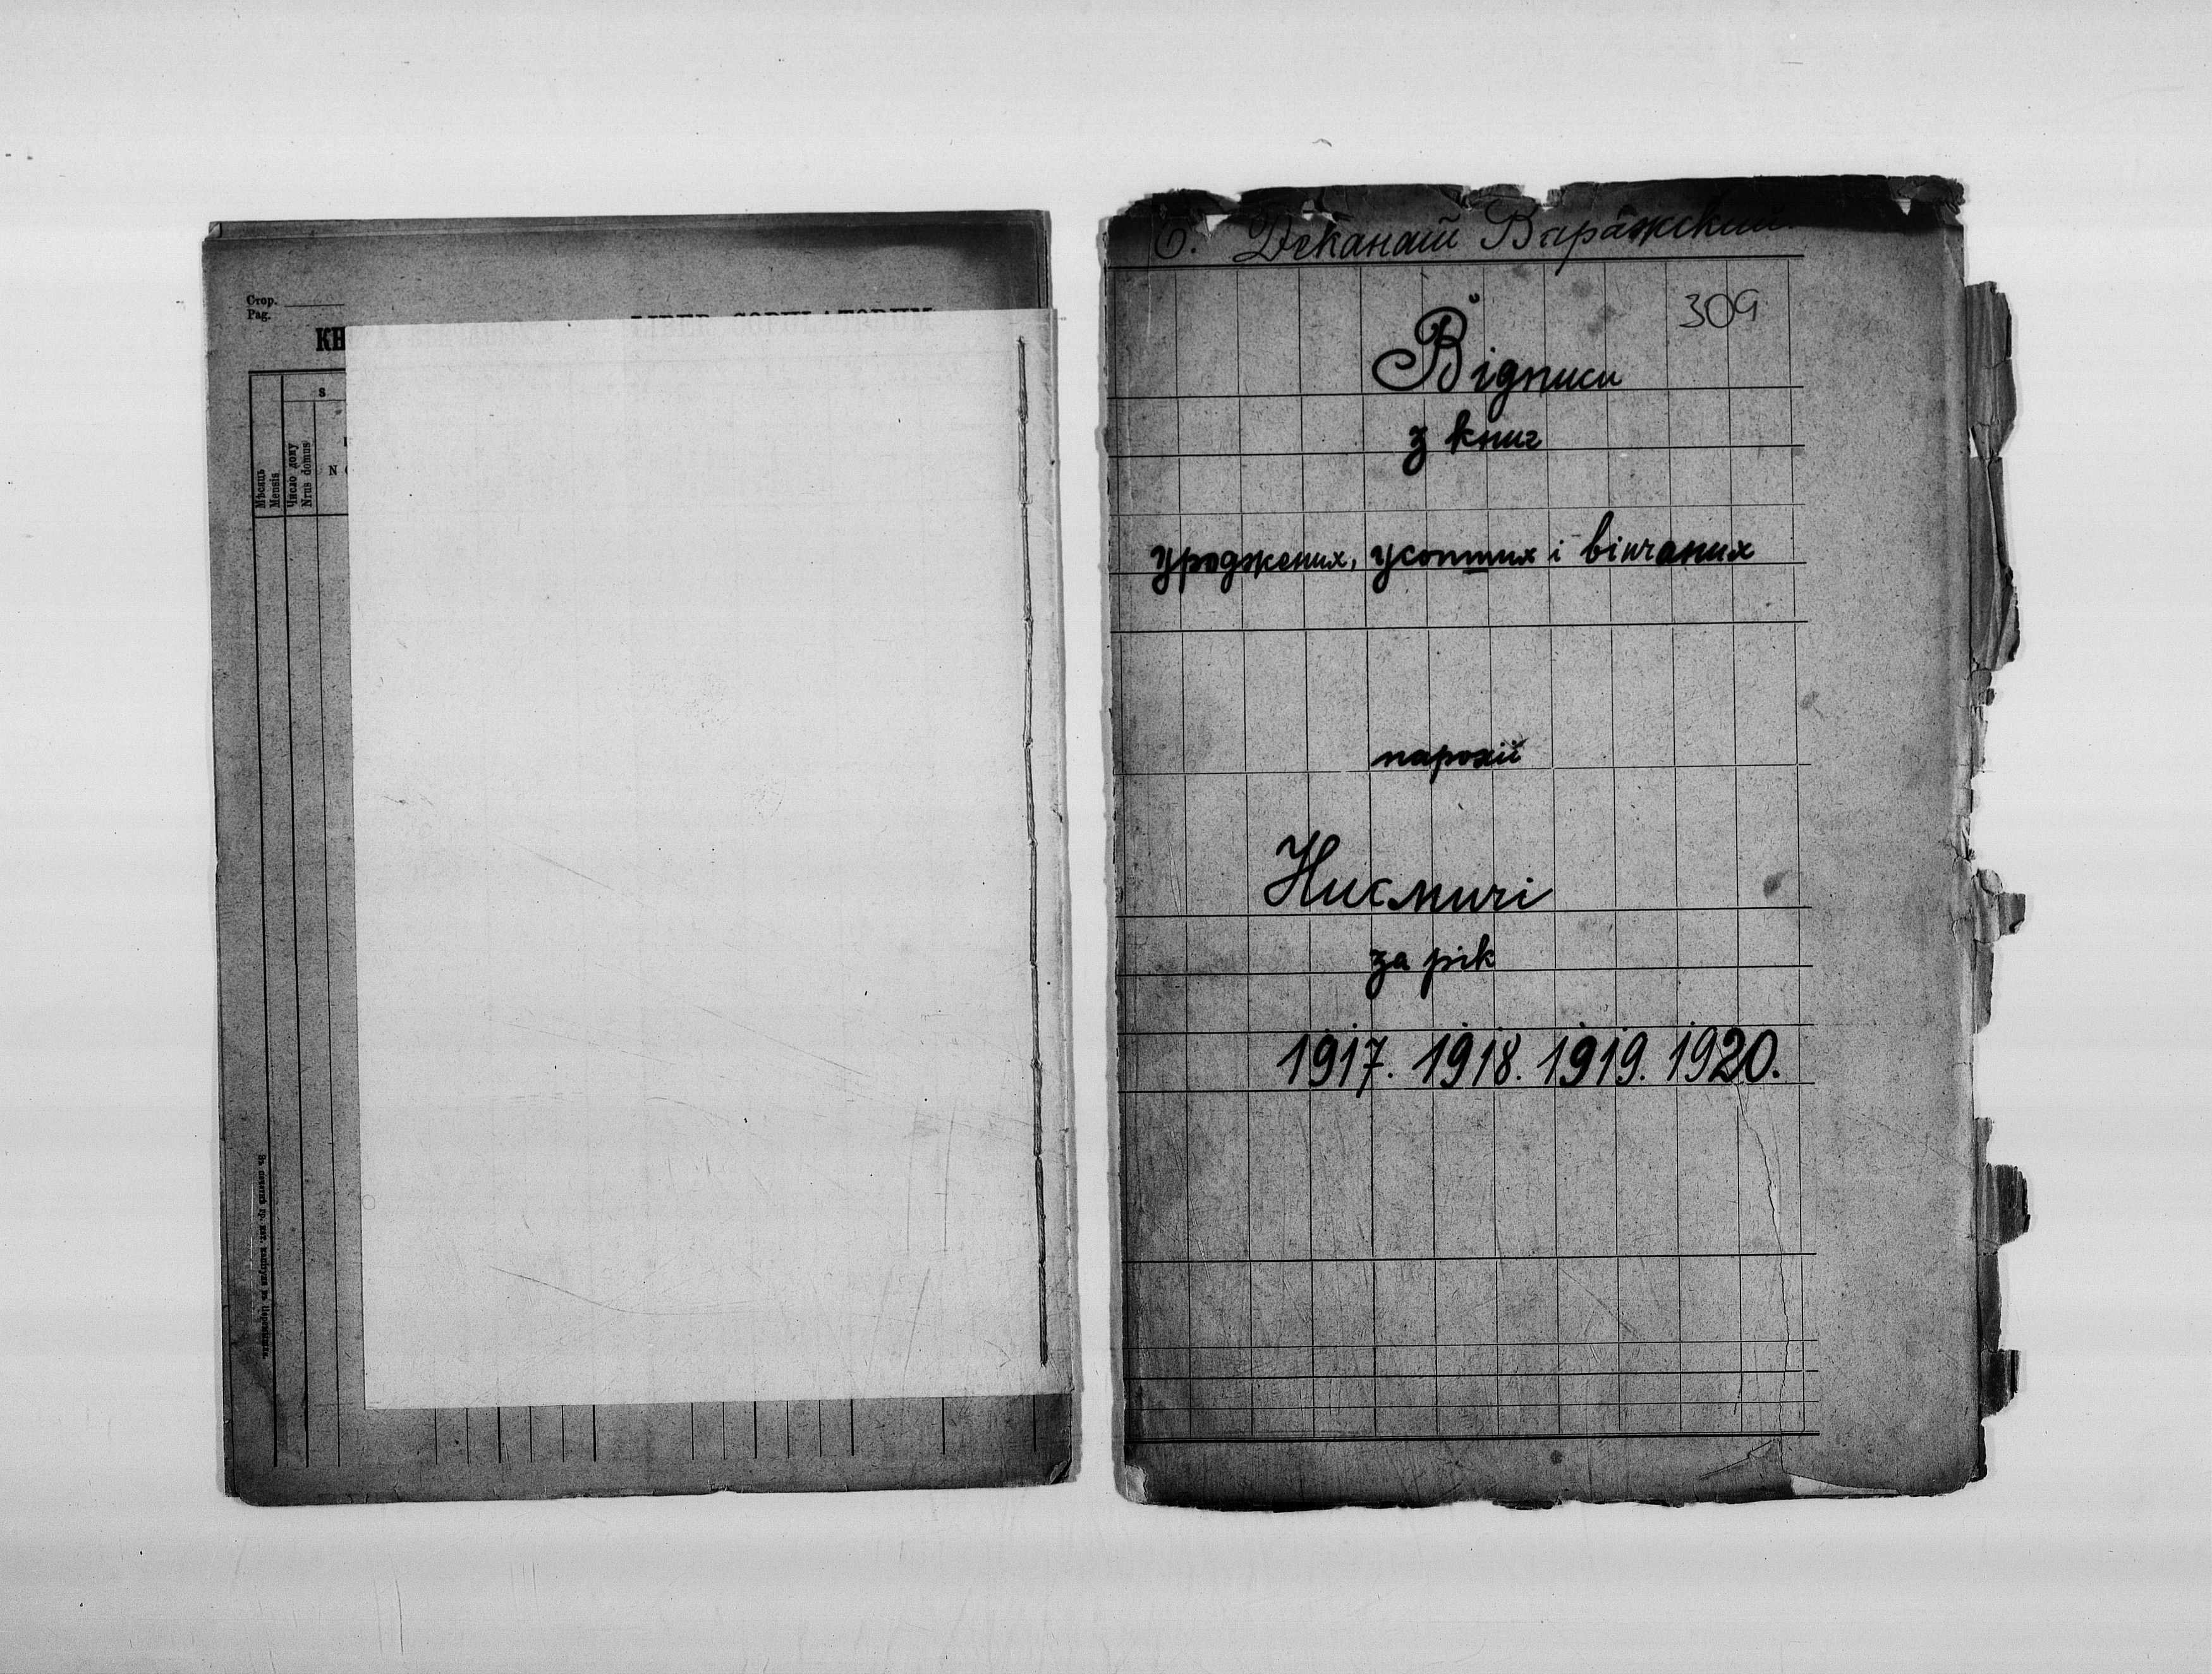 Стор.
Pag.
КН
LIBER COPULATORUM
s
N
Мѣсяць
Mensis
Число дому
Nrus domus
Деканат Варяжский
309
Відписи
з книг
уроджених, усопших і вінчаних
парохії
Нисмичі
за рік
1917. 1918. 1919. 1920.